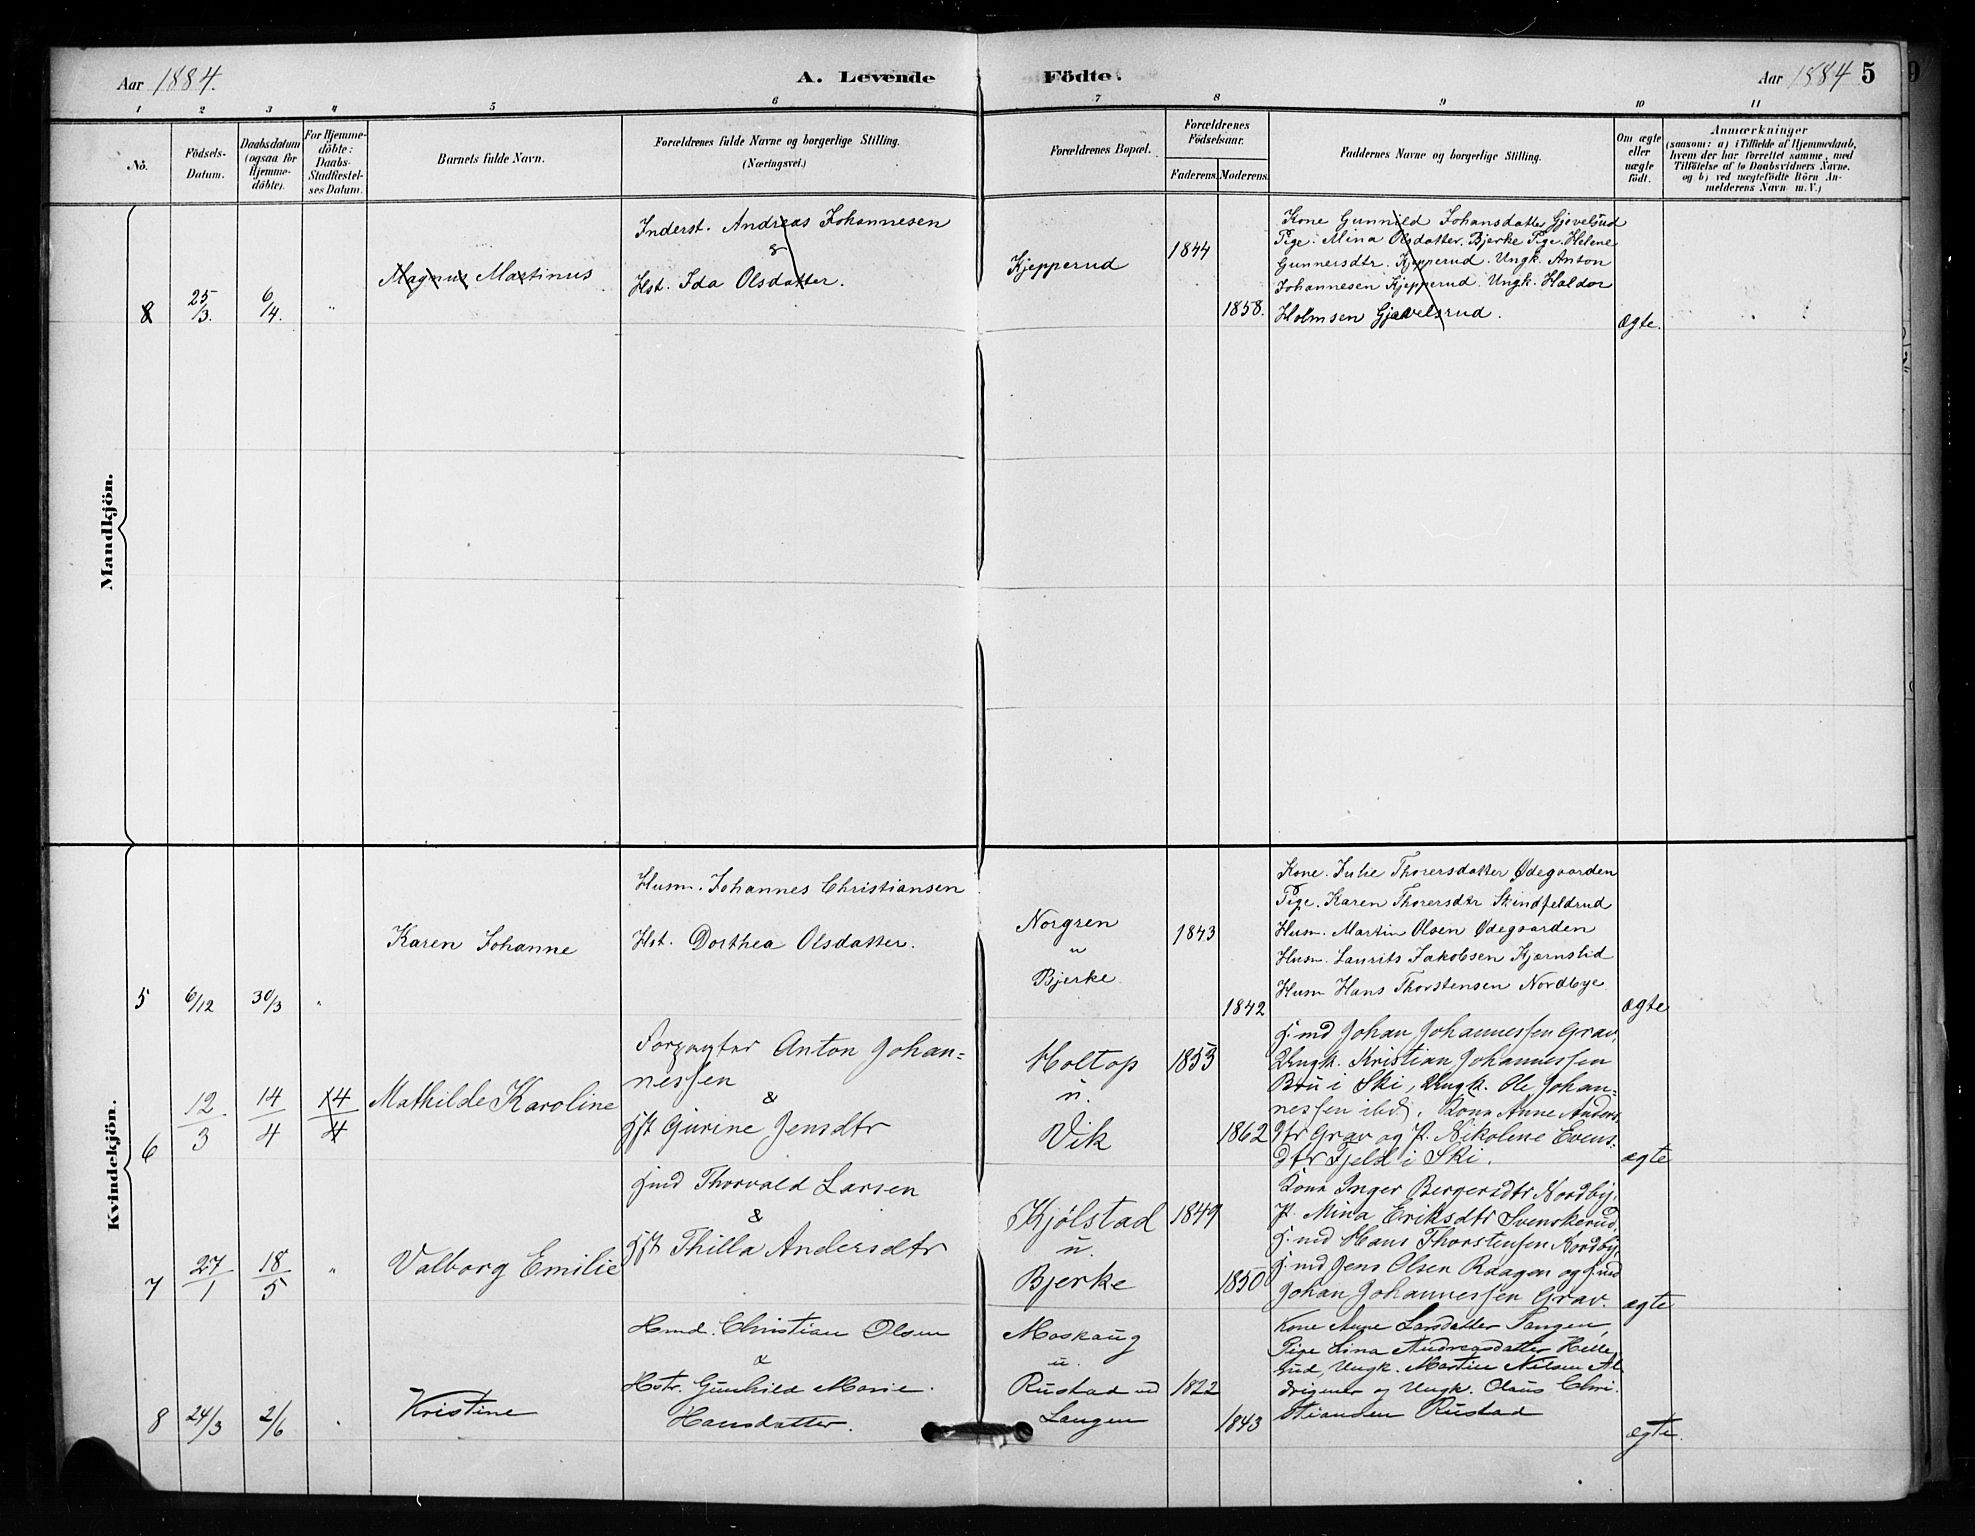 Aar 1884.
A. Levende Födte.
Aar 1884 5
1 2 3 4 5 6 7 8 9 10 11
No.
Födsels-
Datum.
Daabsdatum
(ogsaa for
Hjemme-
döbte).
For Hjemme-
döbte:
Daabs-
Stadfæstel-
ses Datum.
Barnets fulde Navn.
Forældrenes fulde Navne og borgerlige Stilling.
(Næringsvei.)
Forældrenes Bopæl.
Forældrenes
Födselsaar.
Faderens. Moderens.
Faddernes Navne og borgerlige Stilling.
Om ægte
eller
uægte
födt.
Anmærkninger
(saasom: a) i Tilfælde af Hjemmedaab,
hvem der har forrettet samme, med
Tilföielse af to Daabsvidners Navne,
og b) ved uægtefödte Börn An-
melderens Navn m. V.)
Mandkjön.
8 25/3. 6/4. "
Magnus Martinus
Inderst. Andreas Johannesen
&
Hst. Ida Olsdatter.
Kjepperud
1844
1858.
Kone Gunnild Johansdatter Gjevelsrud
Pige. Mina Olsdatter. Bjerke Pige. Helene
Gunnersdtr. Kjepperud. Ungk. Anton
Johannesen Kjepperud. Ungk. Haldor
Holmsen Gjævelsrud.
Ægte.
Kvindekjön.
5 6/12 30/3 "
Karen Johanne
Husm. Johannes Christiansen
Hst. Dorthea Olsdatter.
Norgren
u
Bjerke
1843
1842
Kone. Julie Thorersdatter Ødegaarden
Pige. Karen Thorersdtr Skindfeldrud
Husm. Martin Olsen Ødegaarden
Husm. Laurits Jakobsen Kjærnslid
Husm Hans Thorstensen Nordbye
Ægte
6 12/3 14/4 14/4
Mathilde Karoline
Forpagter Anton Johan-
nessen
&
Hst Gurine Jensdtr
Holtop
u.
Vik
1853
1862
Hmd Johan Johannessen Grav,
Ungk. Kristian Johannessen
Bru i Ski, Ungk. Ole Johan-
nessen ibd. Kone Anne Anders
dtr Grav og P. Nikolene Evens.
dtr Fjeld i Ski.
ægte
7 27/1 18/5 "
Valborg Emilie
Hmd Thorvald Larsen
&
Hst Thilla Andersdtr
Kjølstad
u.
Bjerke
1849
1850
Kone Inger Bergersdtr Nordby,
P. Mina Eriksdtr Svenskerud,
Hmd Hans Thorstensen Nordby,
Hmd Jens Olsen Raagen og Hmd
Johan Johannessen Grav.
ægte
8 24/3 2/6 "
Kristine
Hmd. Christian Olsen
&
Hstr. Gunhild Marie
Hansdatter.
Moskaug
u.
Rustad ved
Langen
1822
1843
Kone Anne Larsdatter Tangen,
Pige Lina Andreasdatter Helle
rud, Ungk. Martin Nilsen
og Ungk. Olaus Chri-
stiansen Rustad
ægte.